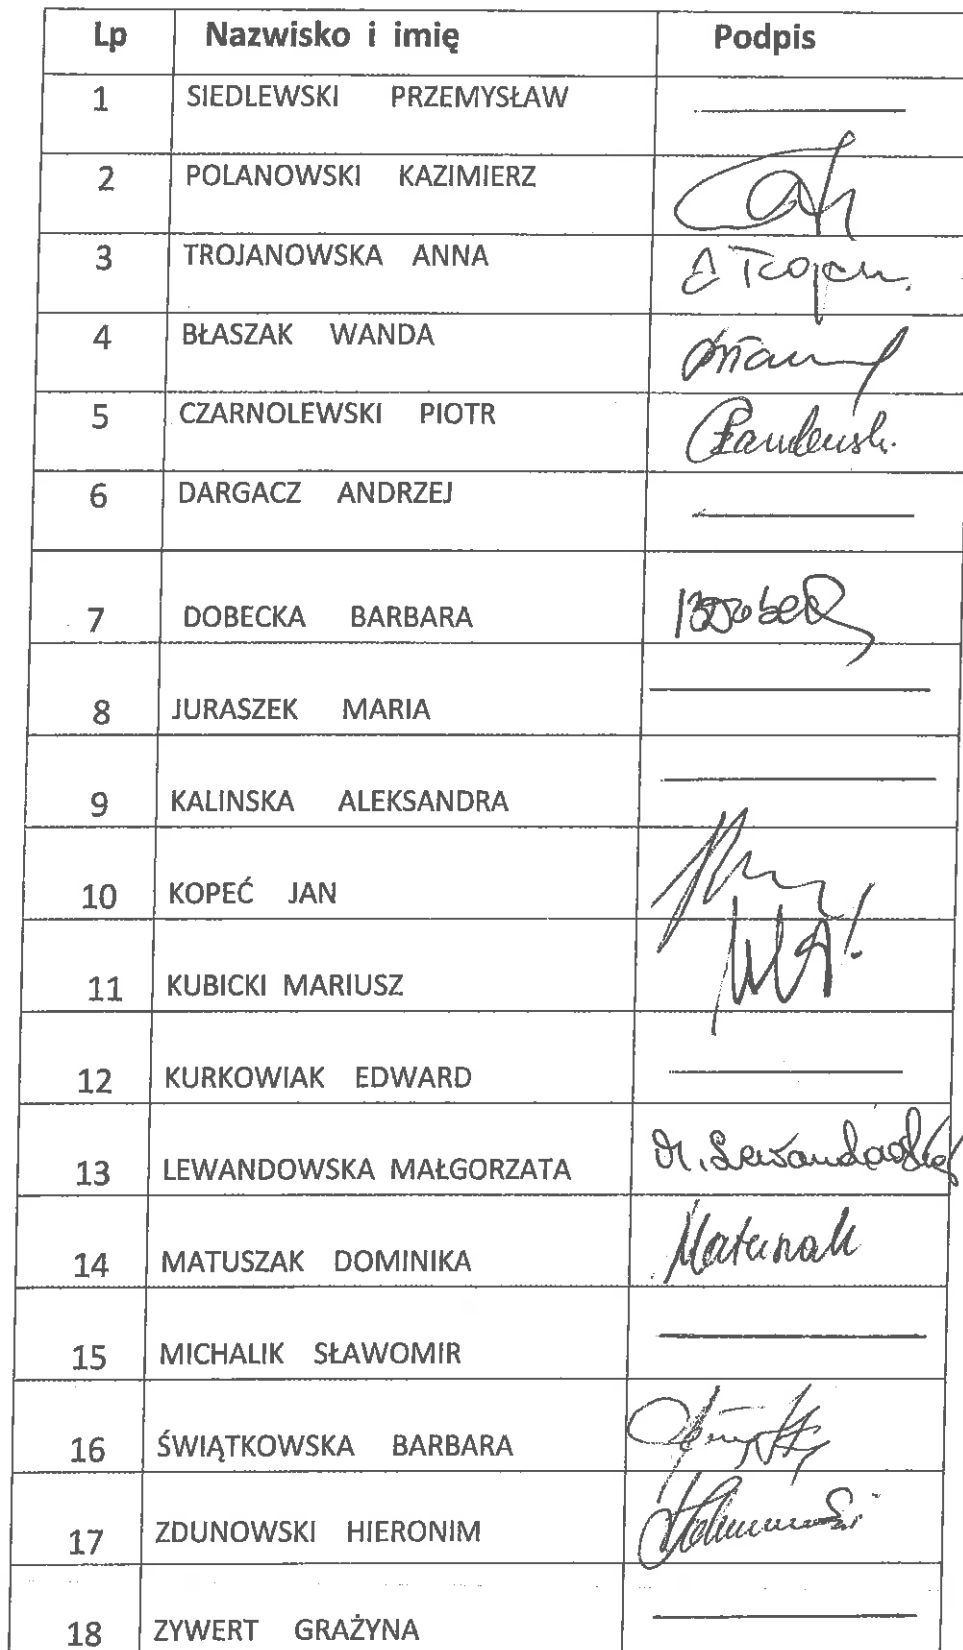 Lp Nazwisko i imię Podpis
1 SIEDLEWSKI PRZEMYSŁAW
2 POLANOWSKI KAZIMIERZ
3 TROJANOWSKA ANNA
4 BŁASZAK WANDA
5 CZARNOLEWSKI PIOTR
6 DARGACZ ANDRZEJ
7 DOBECKA BARBARA
8 JURASZEK MARIA
9 KALINSKA ALEKSANDRA
10 KOPEĆ JAN
11 KUBICKI MARIUSZ
12 KURKOWIAK EDWARD
13 LEWANDOWSKA MAŁGORZATA M. Lewandowska
14 MATUSZAK DOMINIKA Matuszak
15 MICHALIK SŁAWOMIR
16 ŚWIĄTKOWSKA BARBARA
17 ZDUNOWSKI HIERONIM
18 ZYWERT GRAŻYNA